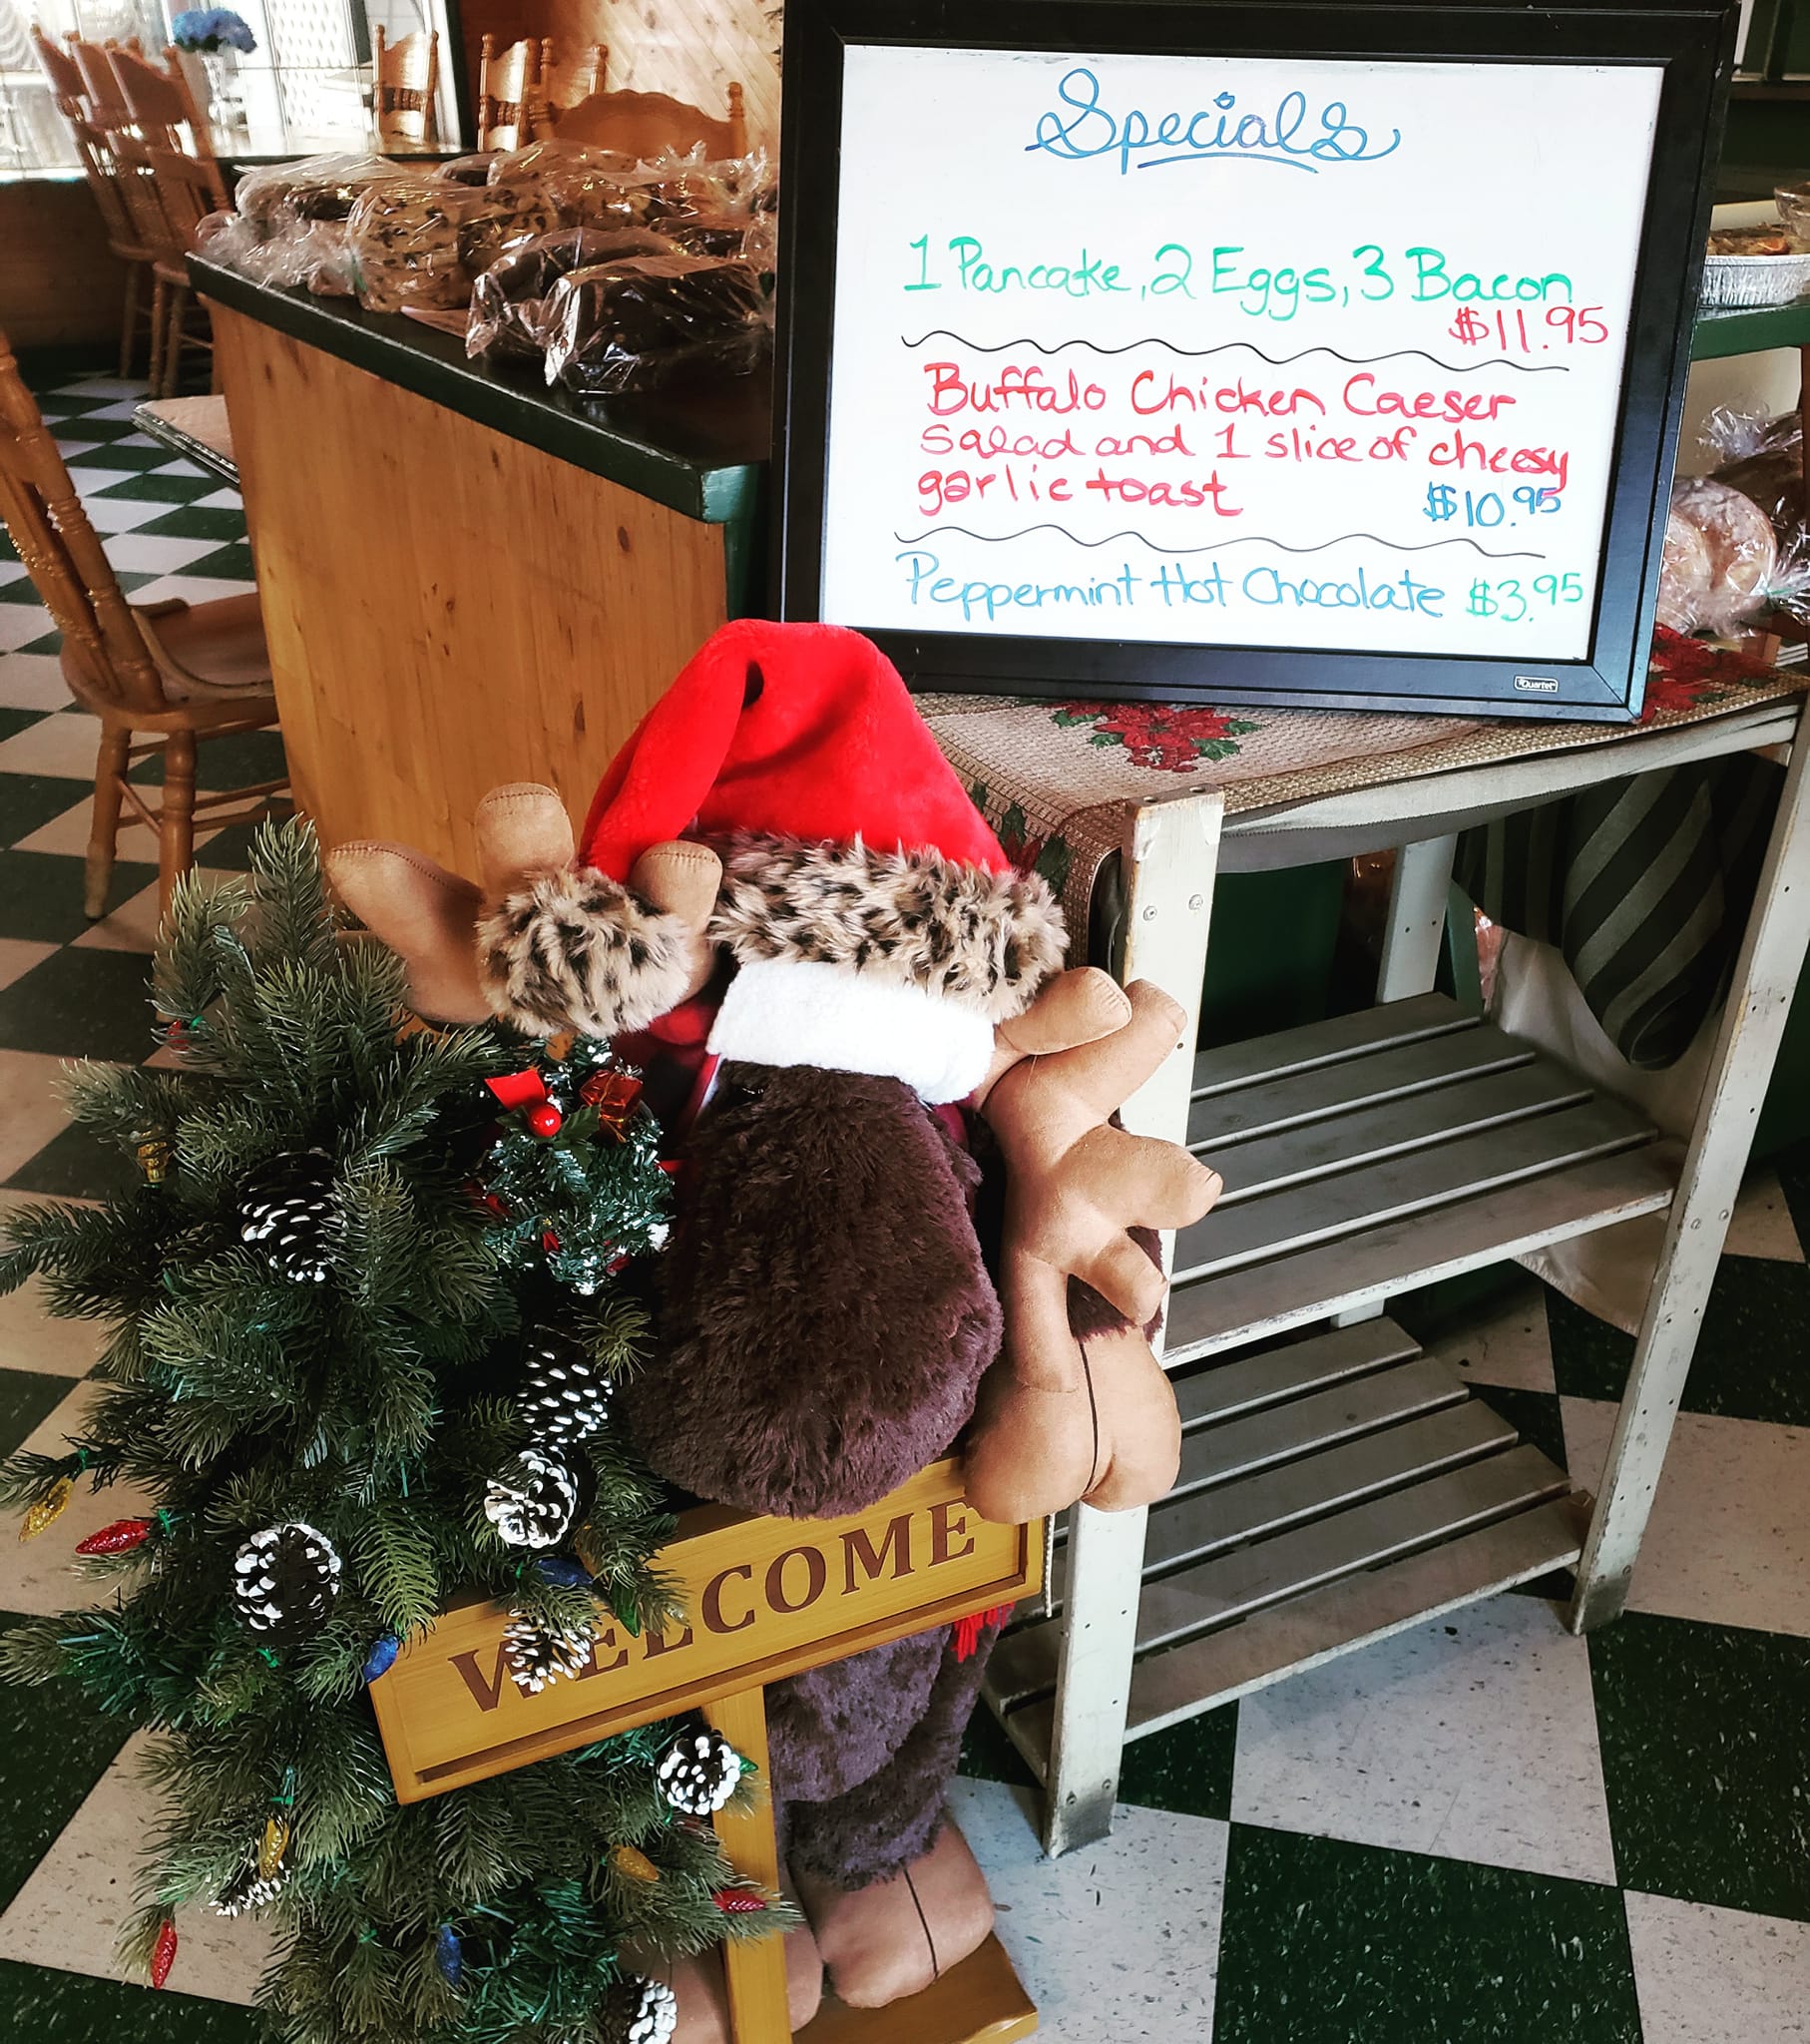 Specials
1 Pancake, 2 Eggs, 3 Bacon
$11.95
Buffalo Chicken Caeser
salad and 1 slice of cheesy
garlic toast $10.95
Peppermint Hot Chocolate $3.95
Quartet
WELCOME